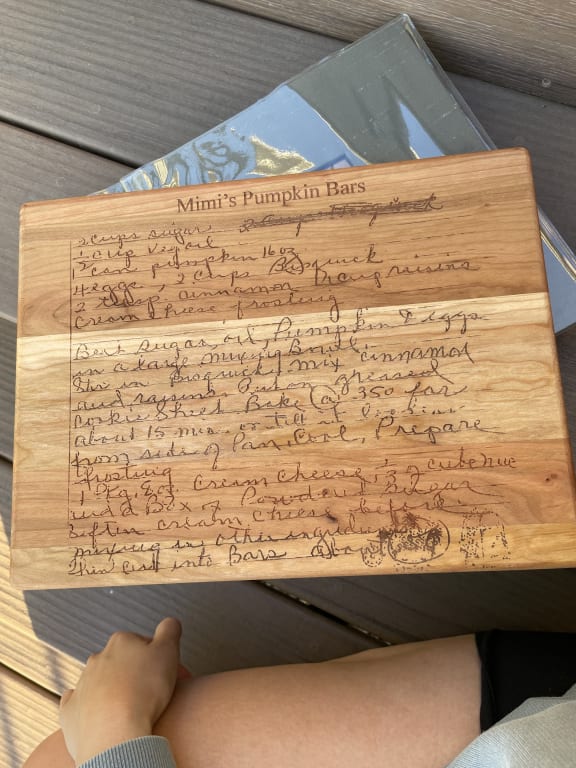 Mimi's Pumpkin Bars
2 cups sugar, 2 Cups Bisquick
½ cup Veg oil
1 can pumpkin 16 oz
4 eggs, 2 cups Bisquick
2 tsp. cinnamon 1 cup raisins
Cream cheese frosting
Beat sugar, oil, Pumpkin & eggs
in a large mixing Bowl.
Stir in Bisquick mix cinnamon
and raisins. Put on greased
cookie sheet Bake @ 350 for
about 15 min. or till it
from side of Pan, Cool, Prepare
frosting
1 Pkg, 8 oz cream cheese, cube
and Box of Powdered Sugar
Soften cream cheese before
mixing in other
Then cut into Bars